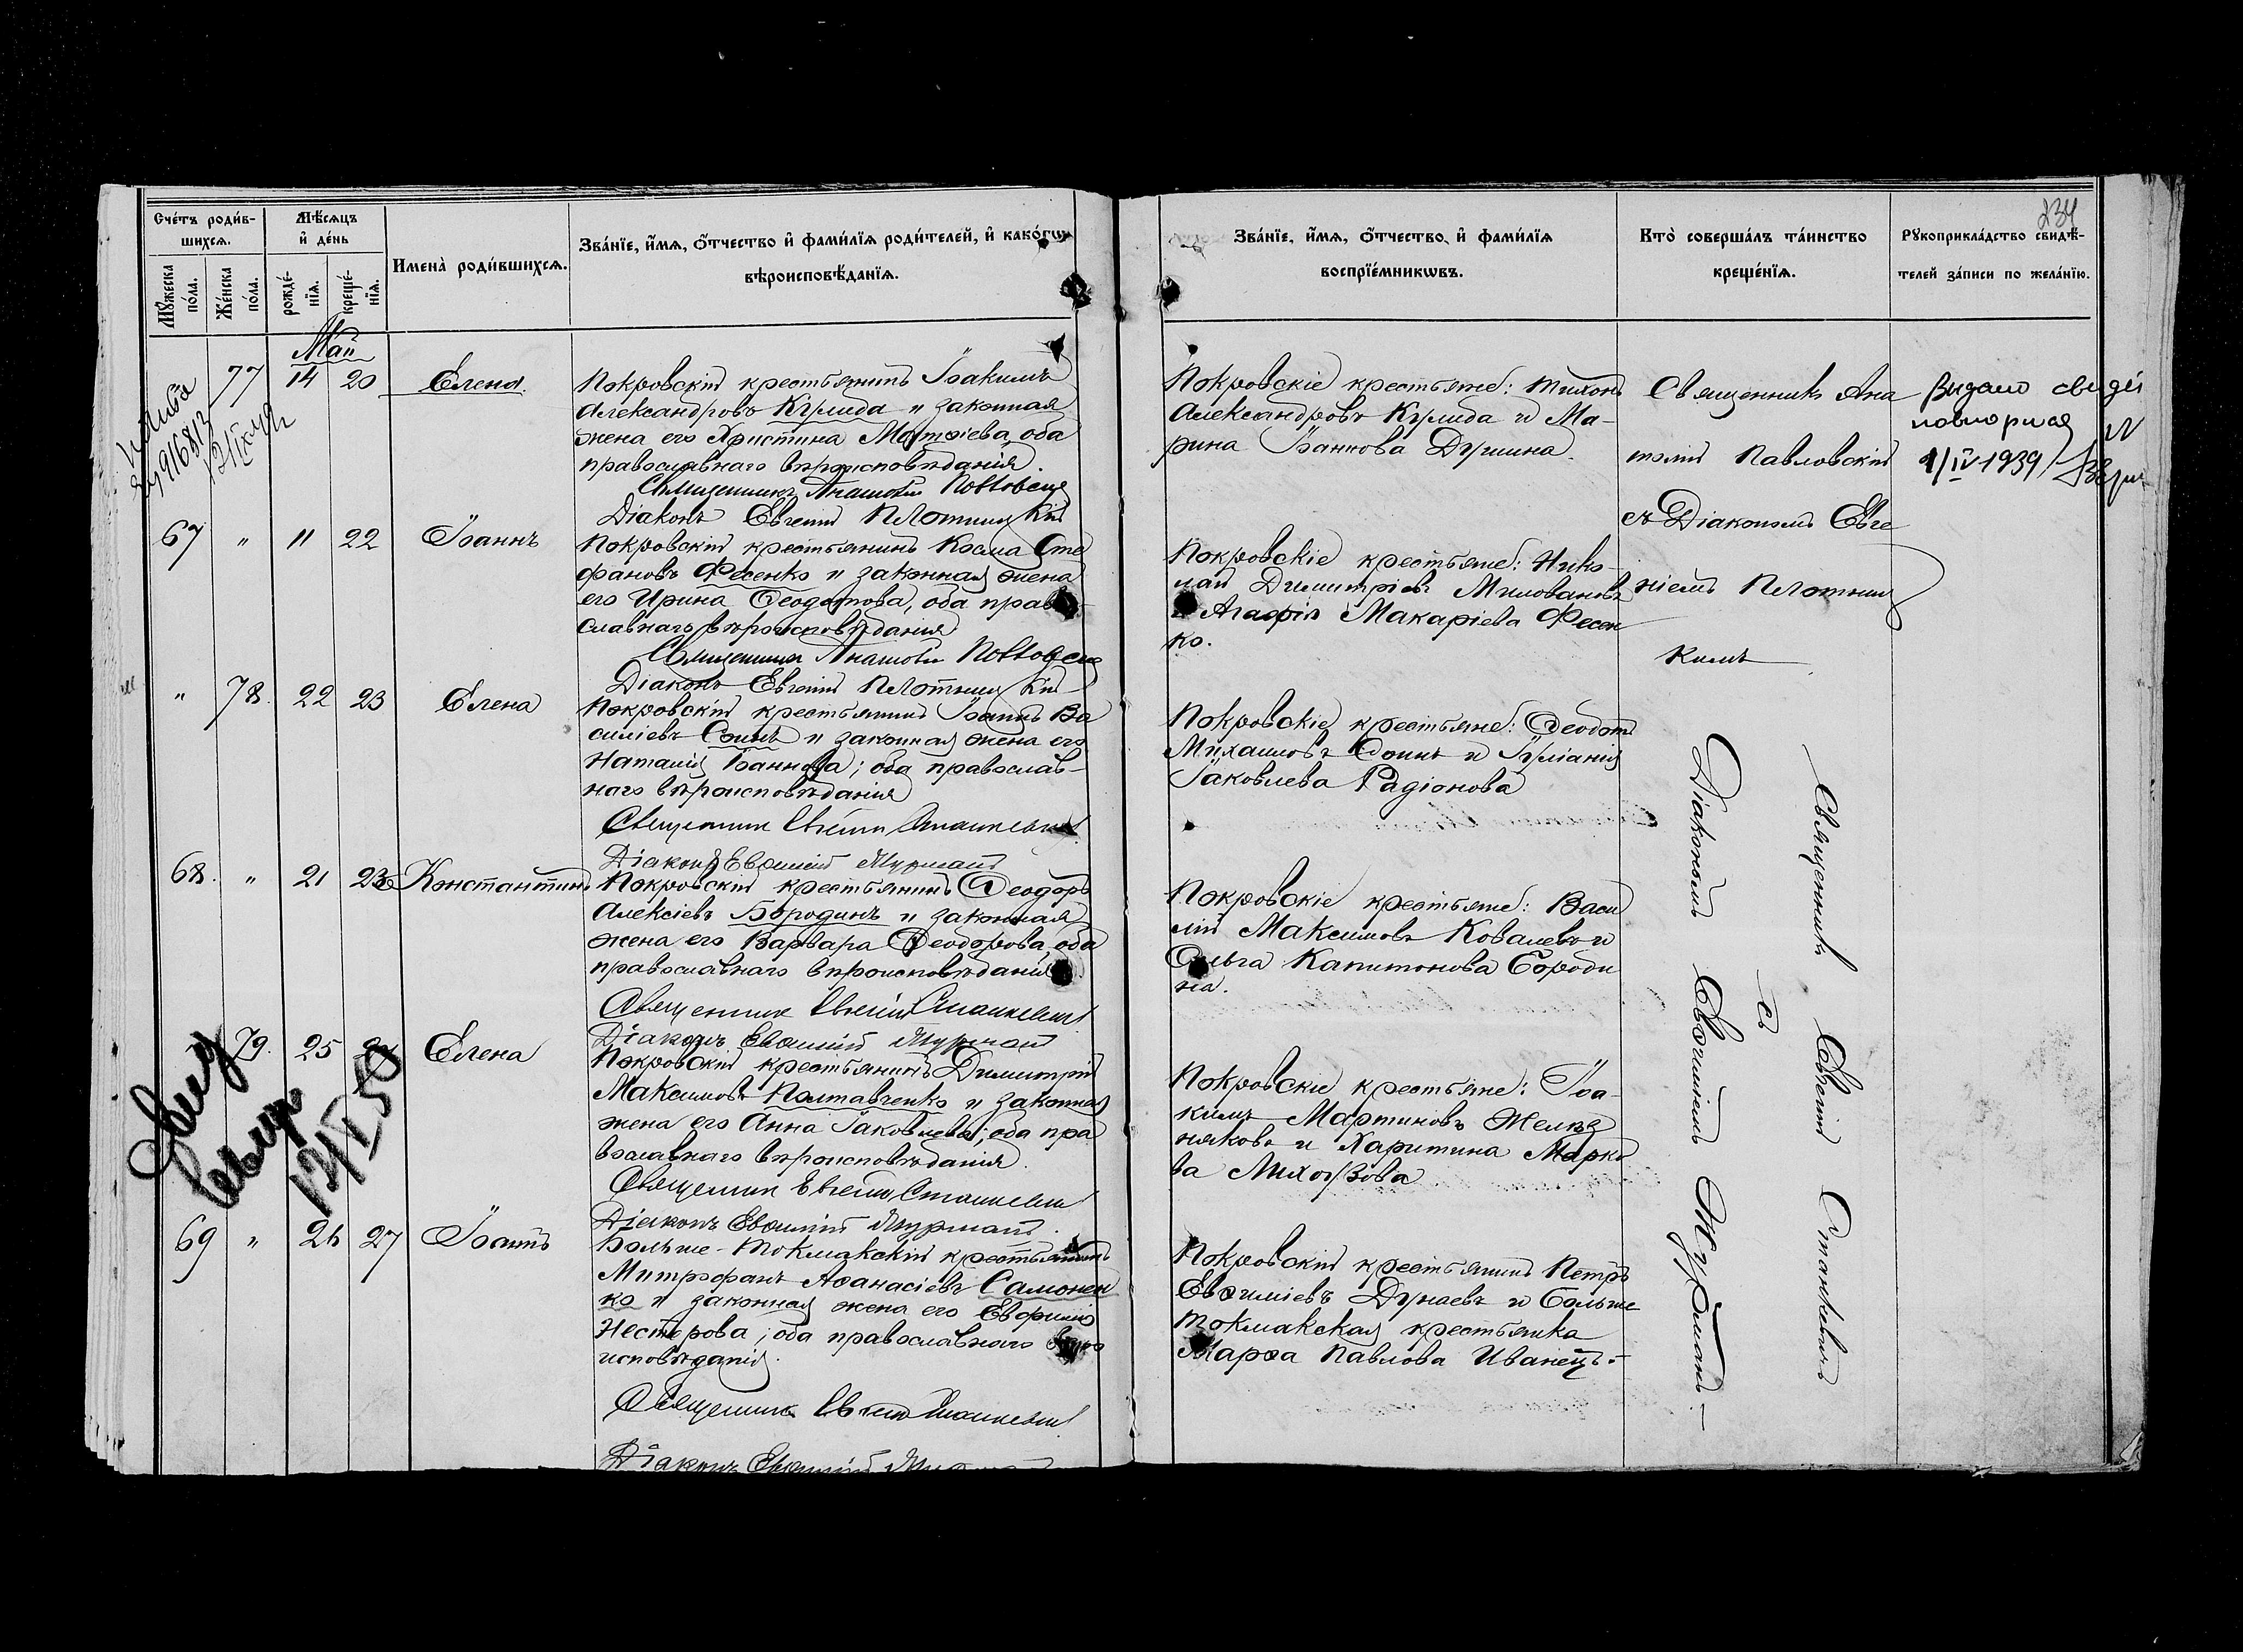 234
Счéтъ роди́в-
шихсѧ.
Мѣ́сѧцъ
и҆ де́нь
Мꙋ́жеска
по́ла.
Же́нска
по́ла.
рожде́-
нїѧ.
креще́-
нїѧ.
Имена̀ роди́вшихсѧ.
Зва́нїе, и҆́мѧ, ѻ҆́тчество и҆ фами́лїѧ роди́телей, и҆ како́гѡ
вѣроисповѣ́данїѧ.
Зва́нїе, и҆́мѧ, ѻ҆́тчество, и҆ фами́лїѧ
воспрїе́мникѡвъ.
Кто̀ соверша́лъ та́инство
креще́нїѧ.
Рꙋкоприкла́дство свидѣ́-
телей за́писи по жела́нїю.
Май
77 14 20 Елена.
Покровскій крестьянинъ Іоакимъ
Александровъ Кулида и законная
жена его Христина Матѳіева, оба
православнаго вѣроисповѣданія.
Священникъ Анатолій Павловскій
Діаконъ Евгеній Плотницкій
Покровскіе крестьяне: Тихонъ
Александровъ Кулида и Ма-
рина Іоаннова Душина.
Священникъ Ана
толій Павловскій
съ Діакономъ Евге
ніемъ Плотниц
кимъ
Видано свидет
повторное
1/IV-1939
67 " 11 22 Іоаннъ
Покровскій крестьянинъ Косма Сте
фановъ Фесенко и законная жена
его Ирина Ѳеодотова, оба право-
славнаго вѣроисповѣданія
Священникъ Анатолій Павловскій
Діаконъ Евгеній Плотницкій
Покровскіе крестьяне: Нико-
лай Димитріевъ Миловановъ
и Агафія Макаріева Фесен
ко.
" 78. 22 23 Елена
Покровскій крестьянинъ Іоаннъ Ва
силіевъ Сонинъ и законная жена его
Наталія Іоаннова; оба православ-
наго вѣроисповѣданія
Священникъ Евгеній Станкевичъ
Діаконъ Евѳимій Журманъ
Покровскіе крестьяне: Ѳеодотъ
Михаиловъ Сонинъ и Іуліанія
Іаковлева Радіонова
Священникъ Евгеній Станкевичъ
съ
Діакономъ Евѳиміемъ Журманъ.—
68. " 21 23 Константинъ
Покровскій крестьянинъ Ѳеодоръ
Алексіевъ Бородинъ и законная
жена его Варвара Ѳеодорова, оба
православнаго вѣроисповѣданія
Священникъ Евгеній Станкевичъ
Діаконъ Евѳимій Журманъ
Покровскіе крестьяне: Васи
лій Максимовъ Ковалевъ и
Ольга Капитонова Бороди
на.
79. 25 Елена
Покровскій крестьянинъ Димитрій
Максимовъ Полтавченко и законная
жена его Анна Іаковлева; оба пра
вославнаго вѣроисповѣданія.
Священникъ Евгеній Станкевичъ
Діаконъ Евѳимій Журманъ.
Покровскіе крестьяне: Іоа-
кимъ Мартиновъ Желѣз
няковъ и Харитина Марко
ва
69 " 26 27 Іоаннъ
Больше-Токмакскій крестьянинъ
Митрофанъ Аѳанасіевъ Самонен
ко и законная жена его Евфимія
Нестерова; оба православнаго вѣро
исповѣданія.
Священникъ Евгеній Станкевичъ
Діаконъ Евѳимій Журманъ
Покровскій крестьянинъ Петръ
Евѳиміевъ Дунаевъ и Больше
токмакская крестьянка
Марѳа Павлова Иванецъ.-